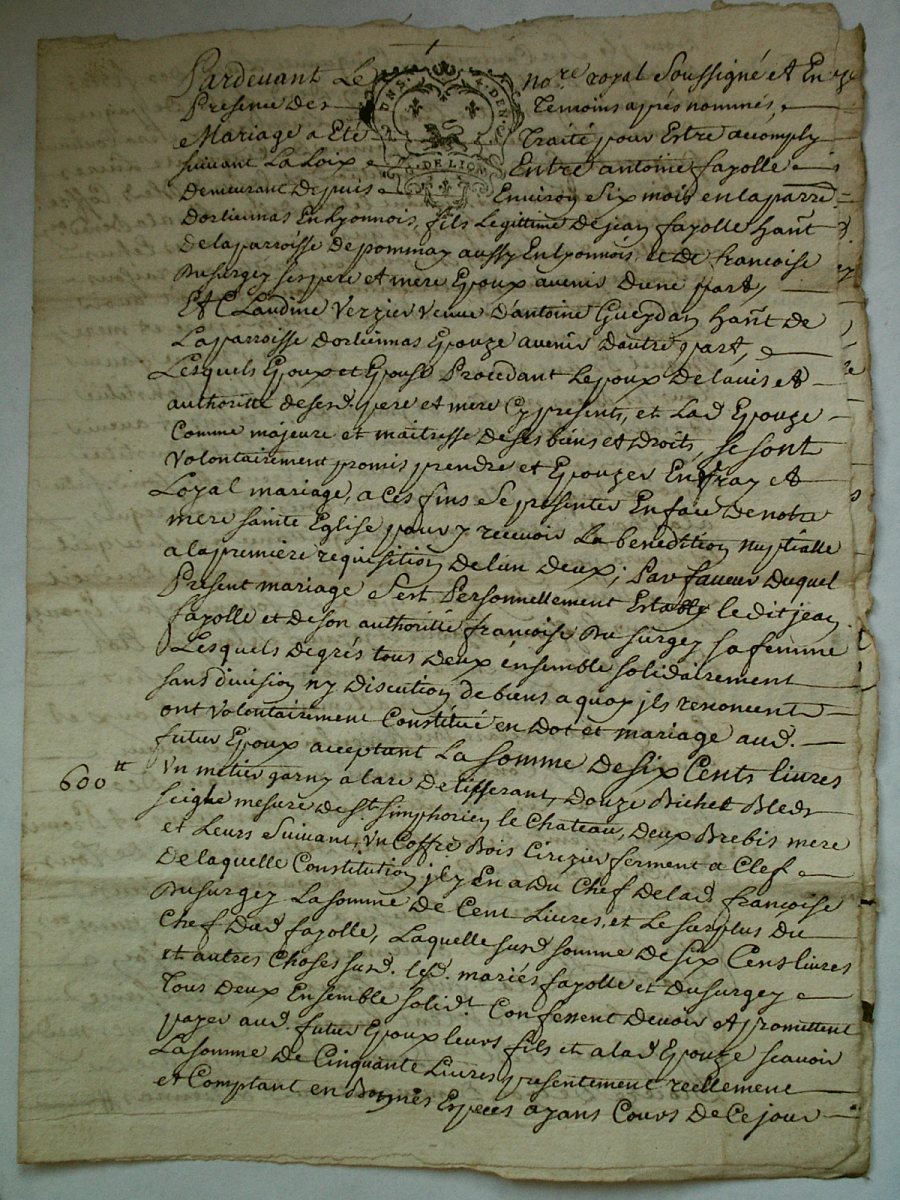 Pardevant Le no.re royal Soussigné et En
Presence des Temoins après nommés,
Mariage a Eté Traité pour Estre accomply
suivant La Loix Entre antoine fayolle
G. DE LION
Demeurant Depuis Environ Six mois en laparre
Dorliennas En Lyonnois, fils Legittime de jean fayolle hant
De la parroisse de pommay aussy En lyonnois, et de francoise
Dusurgey ses pere et mere Epoux avenir D'une part,
Et Claudine Verzier Veuve D'antoine Gueydan hant de
La parroisse Dorliennas Epouze avenir D'autre part,
Lesquels Epoux et Epouse Procedant Lepoux De lavis et
authorité de sesd. pere et mere Cy presents, et Lad. Epouze
Comme majeure et maitresse De ses biens et Droits, se sont
Volontairement promis prendre et Epouzer En Vray et
Loyal mariage, a ces fins se presenter En face De notre
mere sainte Eglise pour y recevoir La benediction nuptialle
a la première requisition De l'un Deux; Par faveur Duquel
Present mariage s'est Personnellement Estably ledit jean
fayolle et de son authorité francoise Dusurgey sa femme
Lesquels de grés tous Deux énsemble solidairement
sans division ny Discution de biens a quoy jls renoncent
ont Volontairement Constitué en Dot et mariage aud.
futur Epoux acceptant La somme De six Cents livres
600tt
Vn métier garny a faire De tifferant, Douze Bichet Bled
seigle mesure de St. simphorien le Chateau, Deux Brebis mere
et Leurs Suivant, Vn Coffre Bois Cirezier ferment a Clef
De laquelle Constitution jl y En a Du Chef De lad. françoise
Dusurgey La somme De Cent Livres, et Le surplus Du
Chef Dud. fayolle, Laquelle susd. somme De six Cens livres
et autres Choses susd. lesd. mariés fayolle et Dusurgey
Tous Deux Ensemble solid.t Confessent Devoir et promettent
payer aud. futur Epoux leurs fils et a lad. Epouze scavoir
La somme De Cinquante Livres presentement reellement
et Comptant en Bonnes Especes ayans Cours De Ce jour